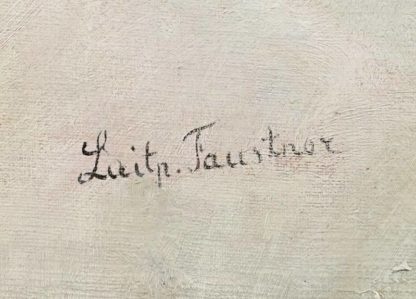 Luitp. Faustner